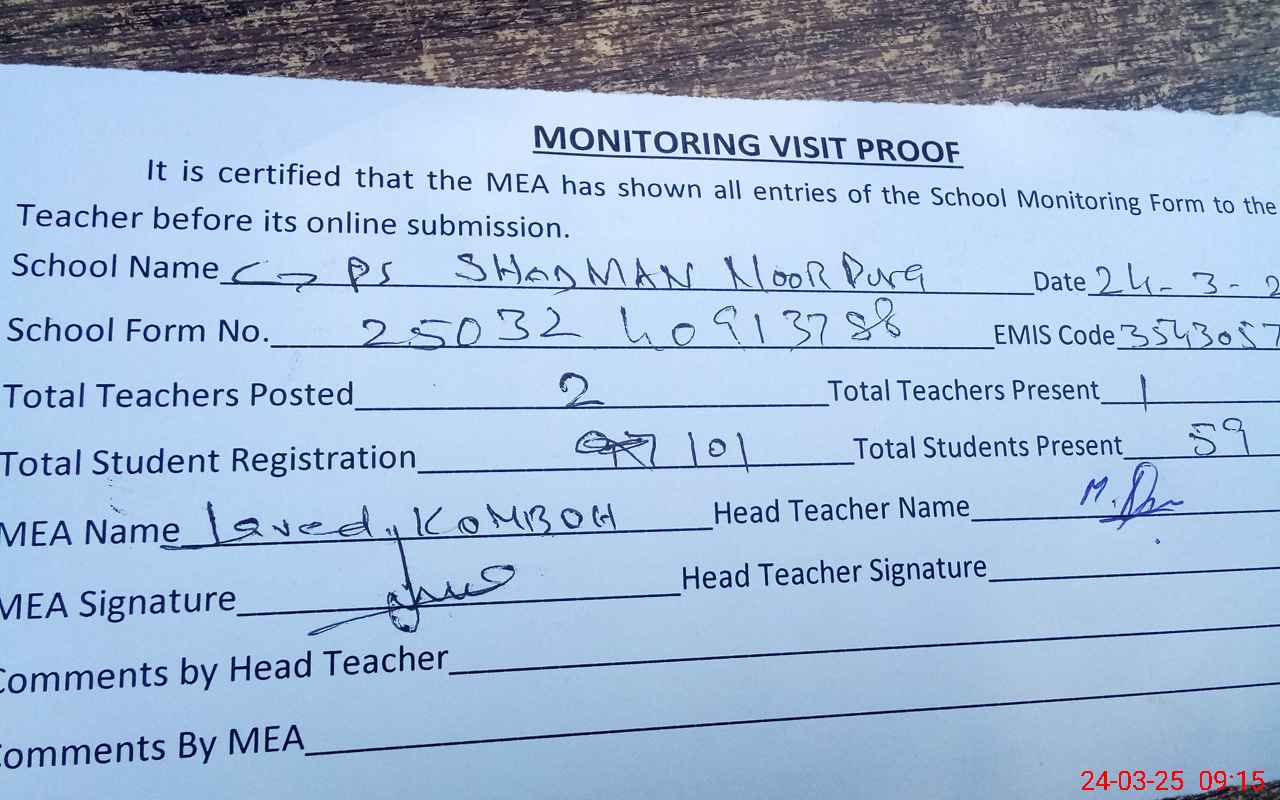 MONITORING VISIT PROOF
It is certified that the MEA has shown all entries of the School Monitoring Form to the
Teacher before its online submission.
School Name PS SHADMAN NOOR PURA Date 24-3-2
School Form No. 25032409137 88 EMIS Code 3543057
Total Teachers Posted 2 Total Teachers Present 1
Total Student Registration 101 Total Students Present 59
MEA Name Javed KOMBOH Head Teacher Name M.
MEA Signature Head Teacher Signature
Comments by Head Teacher
Comments By MEA
24-03-25 09:15